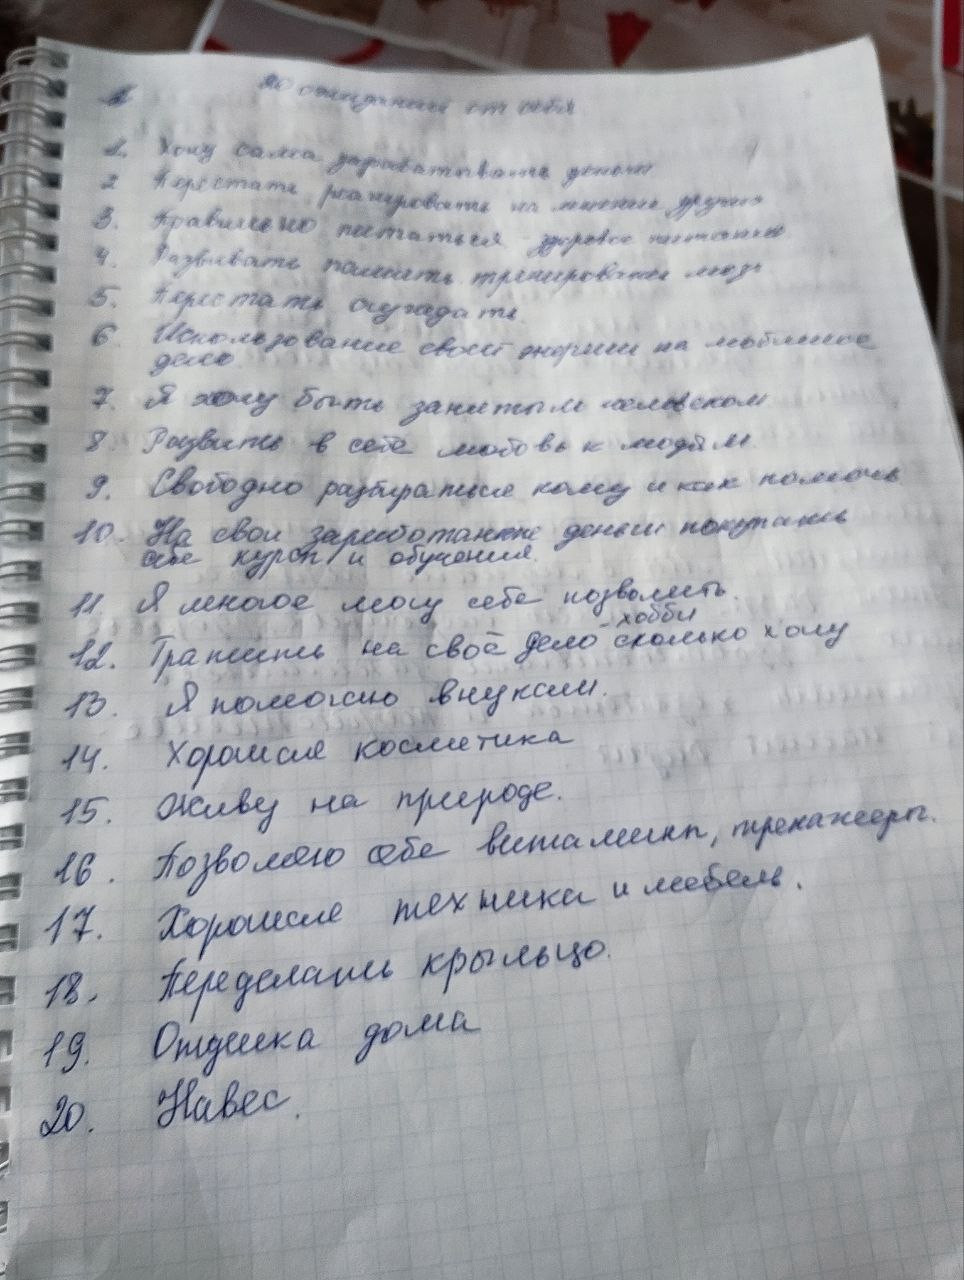 20 ожиданий от себя
1. Хочу сама зарабатывать деньги
2 Перестать реагировать на мнение других
3. Правильно питаться - здоровое питание
4. Развивать память тренировки
5. Перестать осуждать
6. Использование своей энергии на любимое
дело.
7. Я хочу быть занятым человеком
8. Развить в себе любовь к людям.
9. Свободно разбираться кому и как помочь
10. На свои заработанные деньги покупать
себе курсы и обучения.
11. Я многое могу себе позволить.
- хобби
12. Тратить на своё дело сколько хочу
13. Я помогаю внукам.
14. Хорошая косметика
15. Живу на природе.
16. Позволяю себе витамины, тренажеры.
17. Хорошая техника и мебель.
18. Переделать крыльцо.
19. Отделка дома
20. Навес.